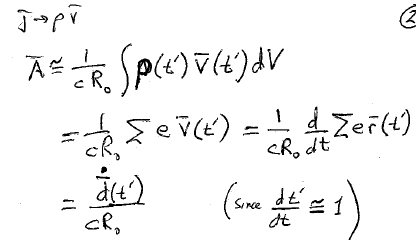 j̄ → ρ v̄ ②
Ā ≅ 1/(cR₀) ∫ ρ(t′) v̄(t′) dV
= 1/(cR₀) Σ e v̄(t′) = 1/(cR₀) d/dt Σ e r̄(t′)
= ḋ̄(t′)/(cR₀) (since dt′/dt ≅ 1)